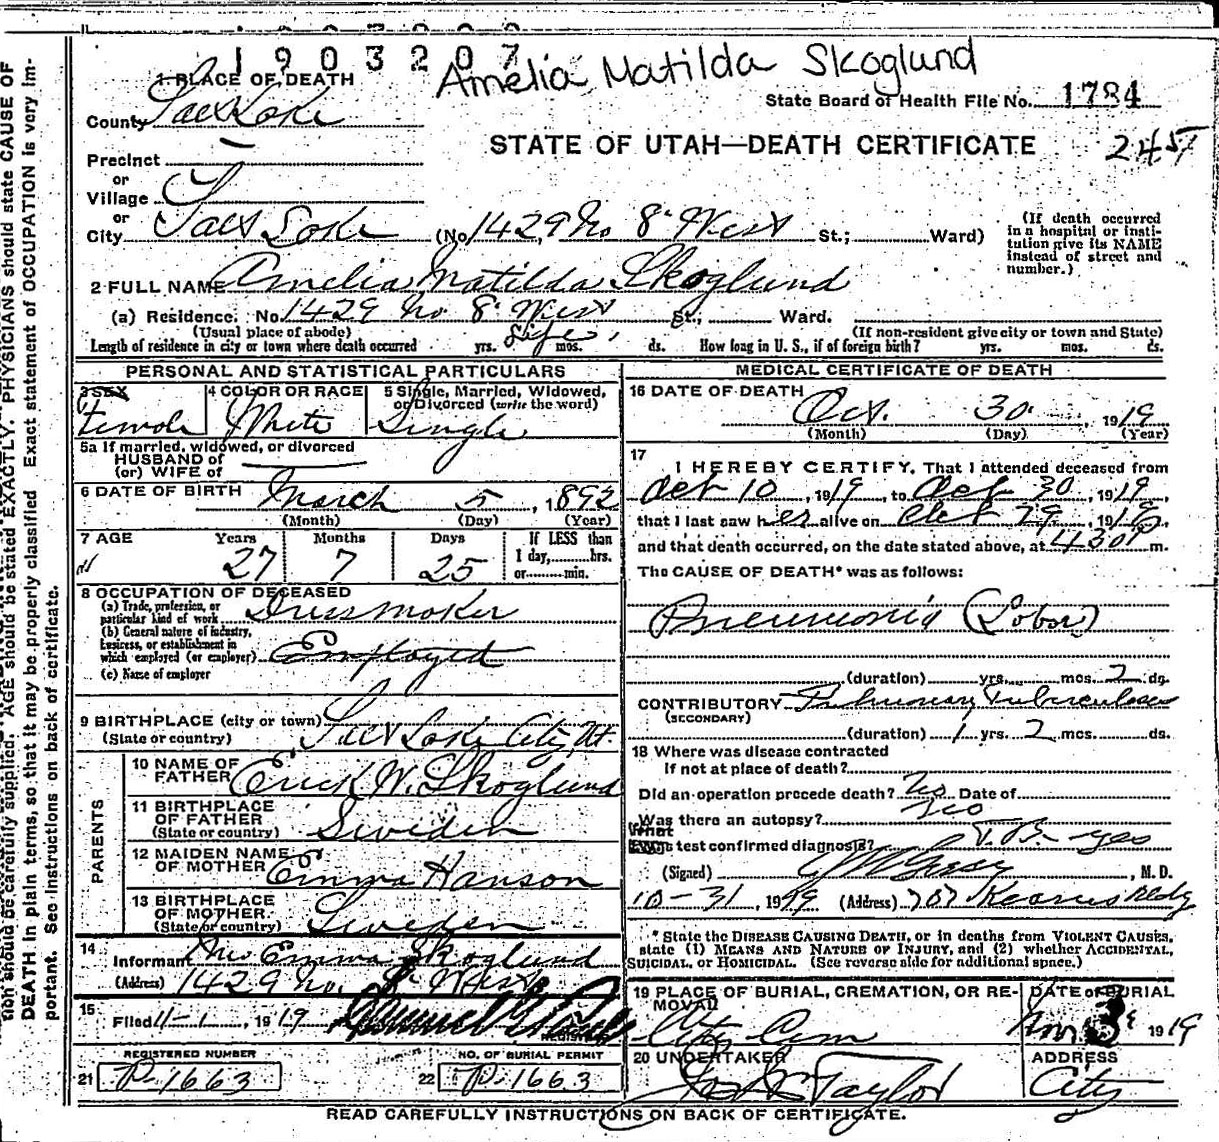 1903207
Amelia Matilda Skoglund
1 PLACE OF DEATH
State Board of Health File No. 1784
County Salt Lake
STATE OF UTAH—DEATH CERTIFICATE
245
Precinct
or
Village
or
City Salt Lake (No. 1429 No 8 West St.; Ward)
(If death occurred in a hospital or institution give its NAME instead of street and number.)
2 FULL NAME Amelia Matilda Skoglund
(a) Residence. No. 1429 No. 8 West St.; Ward.
(Usual place of abode) (If non-resident give city or town and State)
Length of residence in city or town where death occurred yrs. Life mos. ds. How long in U. S., if of foreign birth? yrs. mos. ds.
PERSONAL AND STATISTICAL PARTICULARS
3 SEX Female
4 COLOR OR RACE White
5 Single, Married, Widowed, or Divorced (write the word) Single
5a If married, widowed, or divorced
HUSBAND of
(or) WIFE of
6 DATE OF BIRTH March 5, 1892
(Month) (Day) (Year)
7 AGE Years 27 Months 7 Days 25 If LESS than 1 day, hrs. or min.
8 OCCUPATION OF DECEASED
(a) Trade, profession, or particular kind of work Dressmaker
(b) General nature of industry, business, or establishment in which employed (or employer) Employed
(c) Name of employer
9 BIRTHPLACE (city or town) Salt Lake City, Ut.
(State or country)
PARENTS
10 NAME OF FATHER Erick W. Skoglund
11 BIRTHPLACE OF FATHER Sweden
(State or country)
12 MAIDEN NAME OF MOTHER Emma Hanson
13 BIRTHPLACE OF MOTHER. Sweden
(State or country)
14 Informant Mrs Emma Skoglund
(Address) 1429 No. 8 West
15 Filed 11-1, 1919
REGISTRAR
REGISTERED NUMBER
21 P-1663
NO. OF BURIAL PERMIT
22 P-1663
MEDICAL CERTIFICATE OF DEATH
16 DATE OF DEATH Oct. 30 1919
(Month) (Day) (Year)
17 I HEREBY CERTIFY, That I attended deceased from
Oct 10, 1919, to Oct 30, 1919,
that I last saw her alive on Oct 29, 1919,
and that death occurred, on the date stated above, at 430 P m.
The CAUSE OF DEATH* was as follows:
Pneumonia (Lobar)
(duration) yrs. mos. 2 ds.
CONTRIBUTORY Pulmonary Tuberculosis
(SECONDARY)
(duration) 1 yrs. 2 mos. ds.
18 Where was disease contracted
If not at place of death?
Did an operation precede death? No Date of
Was there an autopsy? No
What test confirmed diagnosis? T.B. - yes
(Signed) , M. D.
10-31, 1919 (Address) 707 Kearns Bldg
* State the DISEASE CAUSING DEATH, or in deaths from VIOLENT CAUSES,
state (1) MEANS AND NATURE OF INJURY, and (2) whether ACCIDENTAL,
SUICIDAL, or HOMICIDAL. (See reverse side for additional space.)
19 PLACE OF BURIAL, CREMATION, OR REMOVAL City Cem
DATE OF BURIAL Nov 3 1919
20 UNDERTAKER Taylor
ADDRESS City
READ CAREFULLY INSTRUCTIONS ON BACK OF CERTIFICATE.
tion should be carefully supplied. AGE should be stated EXACTLY. PHYSICIANS should state CAUSE OF
DEATH in plain terms, so that it may be properly classified. Exact statement of OCCUPATION is very im-
portant. See instructions on back of certificate.